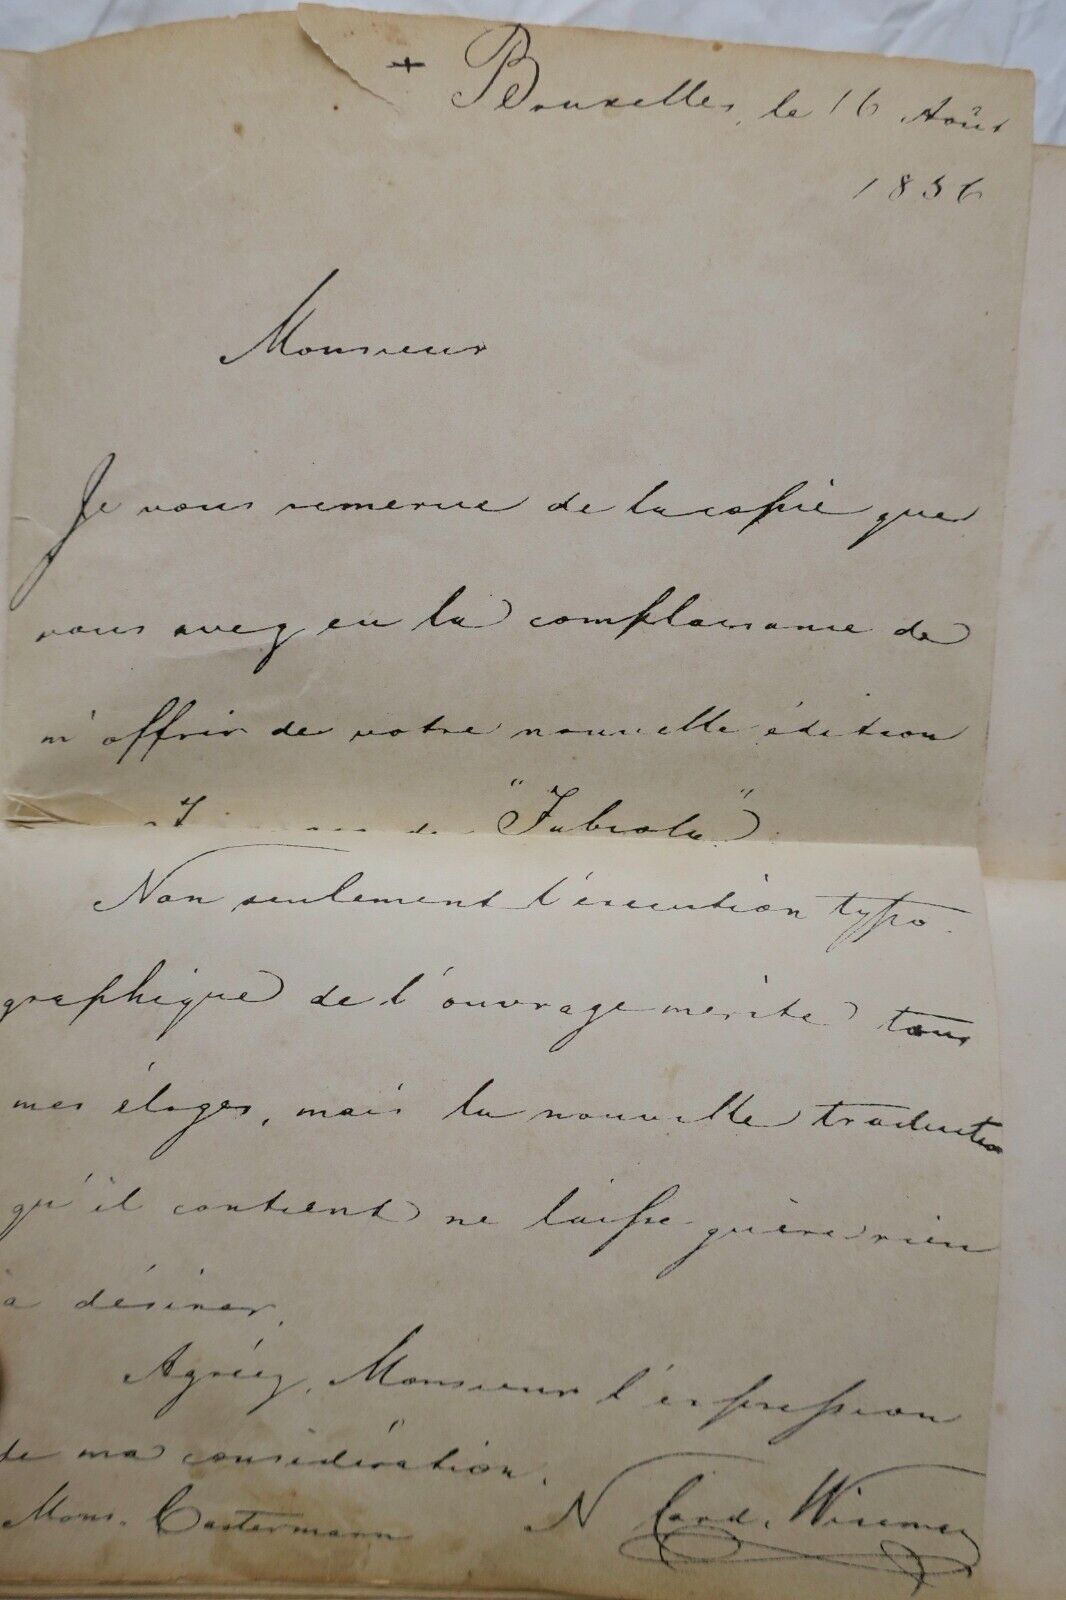 + Bruxelles, le 16 Août
1856
Monsieur
Je vous remercie de la copie que
vous avez eu la complaisance de
m'offrir de votre nouvelle édition
de "Fabiola"
Non seulement l'éxecution typo-
graphique de l'ouvrage mérite tous
mes éloges, mais la nouvelle traduction
qu'il contient ne laisse guère rien
à désirer.
Agréez, Monsieur l'expression
de ma considération.
Mons. Castermann N Card. Wiseman